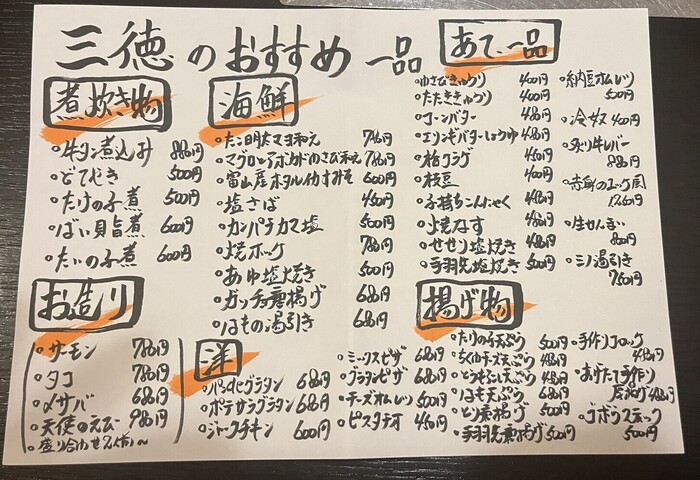 三徳のおすすめ一品
煮炊き物
・牛タン煮込み 880円
・どてやき 500円
・たけの子煮 500円
・ばい貝旨煮 600円
・たいの子煮 600円
お造り
・サーモン 780円
・タコ 780円
・〆サバ 680円
・天使のえび 980円
・盛り合わせ2人前〜
海鮮
・たこ明太マヨ和え 780円
・マグロとアボカドわさび和え 780円
・富山産ホタルイカすみそ 600円
・塩さば 450円
・カンパチカマ塩 500円
・焼ホッケ 780円
・あゆ塩焼き 500円
・ガッチョ唐揚げ 680円
・はもの湯引き 680円
洋
・パングラタン 680円
・ポテサラグラタン 680円
・ジャークチキン 600円
・ミックスピザ 680円
・グラタンピザ 680円
・チーズオムレツ 500円
・ピスタチオ 450円
あて一品
・わさびきゅうり 400円
・たたききゅうり 400円
・コーンバター 480円
・エリンギバターしょうゆ 480円
・枝豆 400円
・子持ちこんにゃく 480円
・焼なす 480円
・せせり塩焼き 480円
・手羽先塩焼き 500円
・納豆オムレツ 500円
・冷奴 400円
・炙り牛レバー 880円
・赤身のユッケ風
・生せんまい 800円
・ミノ湯引き 750円
揚げ物
・たけの子天ぷら 500円
・ちくわチーズ天ぷら 480円
・とうもろこし天ぷら 480円
・はも天ぷら 680円
・とり唐揚げ 500円
・手羽先唐揚げ 500円
・手作りコロッケ 480円
・あげたて手作り厚揚げ 480円
・ゴボウスティック 500円